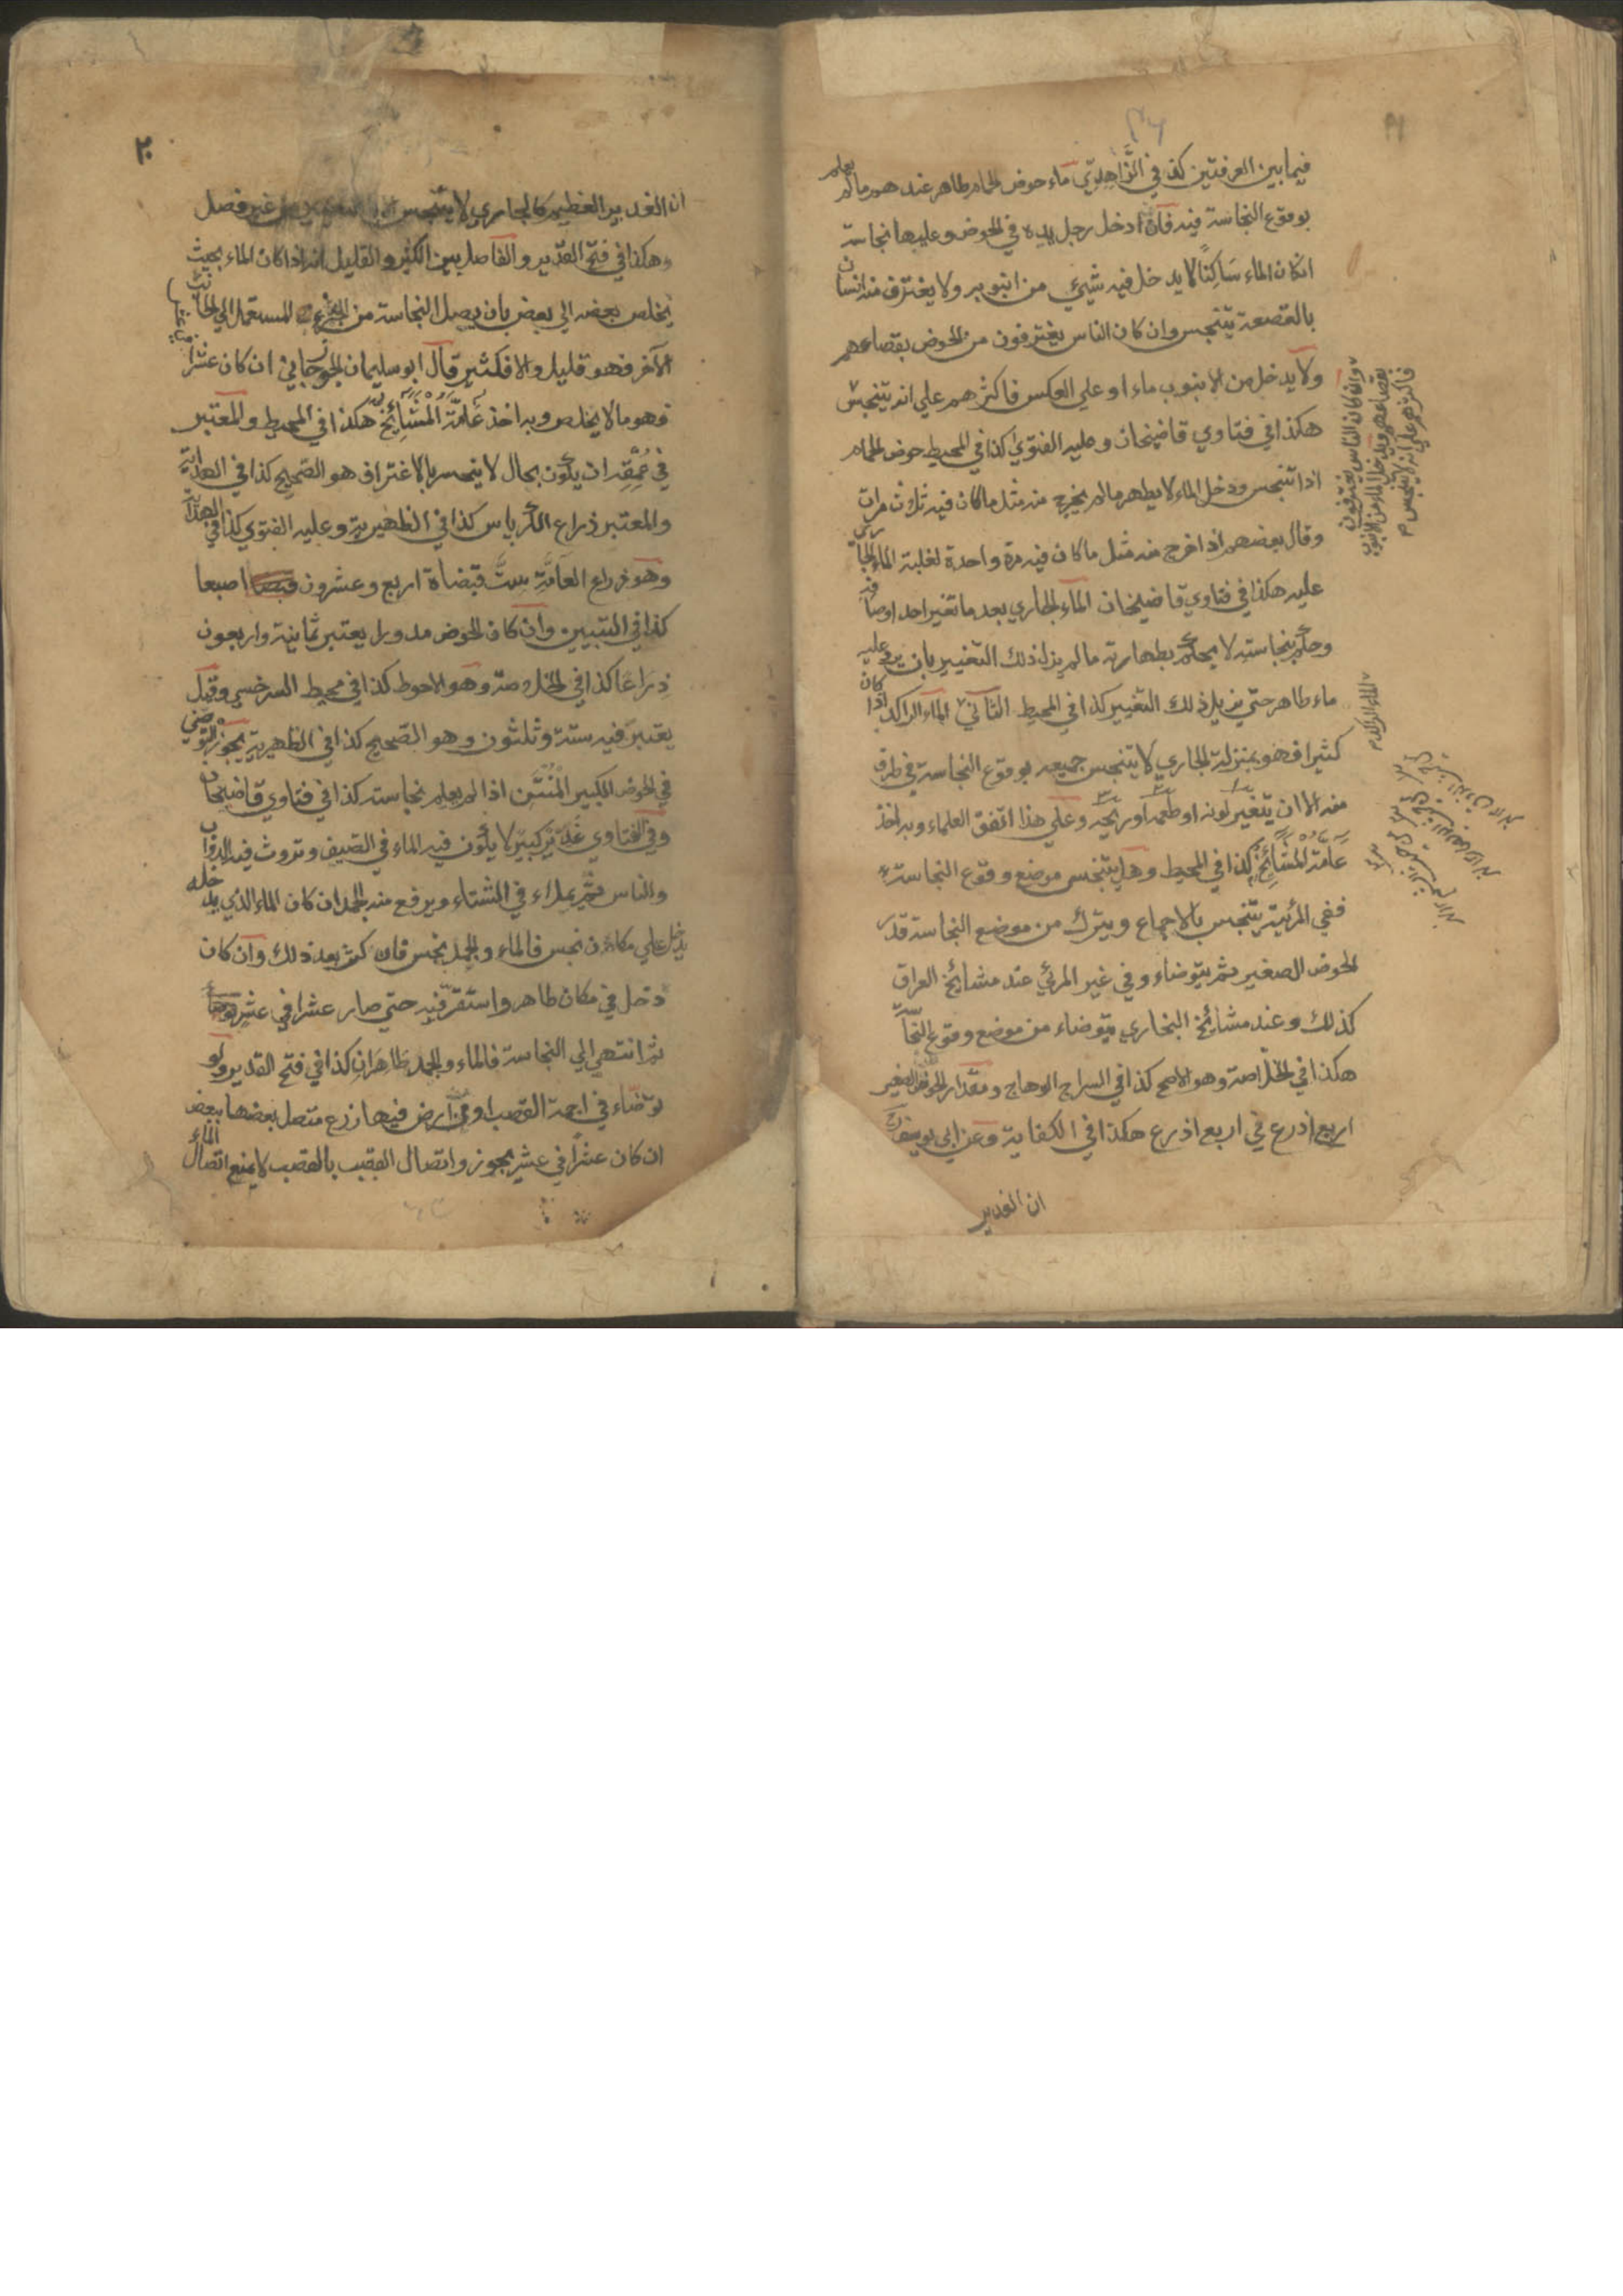 فيما بين الغرفتين كذا في الزاهدي ماء حوض الحمام طاهر عندهم ما لم يعلم
بوقوع النجاسة فيه فان ادخل رجل يده في الحوض وعليها نجاسة
ان كان الماء ساكنا لا يدخل فيه شيئ من انبوبه ولا يغترف منه انسان
بالقصعة يتنجس وان كان الناس يغترفون من الحوض بقصاعهم
ولا يدخل من الانبوب ماء او علي العكس فاكثرهم علي انه يتنجس
هكذا في فتاوي قاضيخان وعليه الفتوي كذا في المحيط حوض الحمام
اذا تنجس ودخل الماء لا يطهر ما لم يخرج منه مثل ما كان فيه ثلاث مرات
وقال بعضهم اذا خرج منه مثل ما كان فيه مرة واحدة لغلبة الماء الجاري
عليه هكذا في فتاوي قاضيخان الماء الجاري بعد ما تغير احد اوصافه
وحكم بنجاسته لا يحكم بطهارته ما لم يزل ذلك التغيير بان يرد عليه
ماء طاهر حتي يزيل ذلك التغيير كذا في المحيط الثاني الماء الراكد اذا كان
كثيرا فهو بمنزلة الجاري لا يتنجس جميعه بوقوع النجاسة في طرف
منه الا ان يتغير لونه او طعمه او ريحه وعلي هذا اتفق العلماء وبه اخذ
عامة المشائخ كذا في المحيط وهل يتنجس موضع وقوع النجاسة
ففي المرئية يتنجس بالاجماع ويترك من موضع النجاسة قدر
الحوض الصغير ثم يتوضاء وفي غير المرئي عند مشايخ العراق
كذلك وعند مشائخ البخاري يتوضاء من موضع وقوع النجاسة
هكذا في الخلاصة وهو الاصح كذا في السراج الوهاج ومقدار الحوض الصغير
اربع اذرع في اربع اذرع هكذا في الكفاية وعن ابي يوسف
ان الغدير
وان كان الناس يغترفون
بقصاعهم ويدخل الماء من الانبوب
فاكثرهم علي انه لا يتنجس م
الماء الراكد م
٢٠
ان الغدير العظيم كالجاري لا يتنجس الا بالتغير من غير فصل
وهكذا في فتح القدير والفاصل بين الكثير والقليل انه اذا كان الماء بحيث
يخلص بعضه الي بعض بان يصل النجاسة من الجزء المستعمل الي الجانب
الآخر فهو قليل والا فكثير قال ابو سليمان الجوزجاني ان كان عشرا
فهو مما لا يخلص وبه اخذ عامة المشائخ هكذا في المحيط والمعتبر
في عمقه ان يكون بحال لا ينحسر بالاغتراف هو الصحيح كذا في الهداية
والمعتبر ذراع الكرباس كذا في الظهيرية وعليه الفتوي كذا في الهداية
وهو ذراع العامة ست قبضاة اربع وعشرون اصبعا
كذا في التبيين وان كان الحوض مدورا يعتبر ثمانية واربعون
ذراعا كذا في الخلاصة وهو الاحوط كذا في محيط السرخسي وقيل
يعتبر فيه ستة وثلثون وهو الصحيح كذا في الظهيرية يجوز التوضي
في الحوض الكبير المنتن اذا لم يعلم نجاسته كذا في فتاوي قاضيخان
وفي الفتاوي غدير كبير لا يكون فيه الماء في الصيف وتروث فيه الدواب
والناس ثم يملاء في الشتاء ويرفع منه الجمد ان كان الماء الذي يدخله
يدخل علي مكان نجس فالماء والجمد نجس فان كثر بعد ذلك وان كان
دخل في مكان طاهر واستقر فيه حتي صار عشرا في عشر
ثم انتهي الي النجاسة فالماء والجمد طاهران كذا في فتح القدير ولو
توضاء في اجمة القصب او من ارض فيها زرع متصل بعضها ببعض
ان كان عشرا في عشر يجوز واتصال القصب بالقصب لا يمنع اتصال الماء